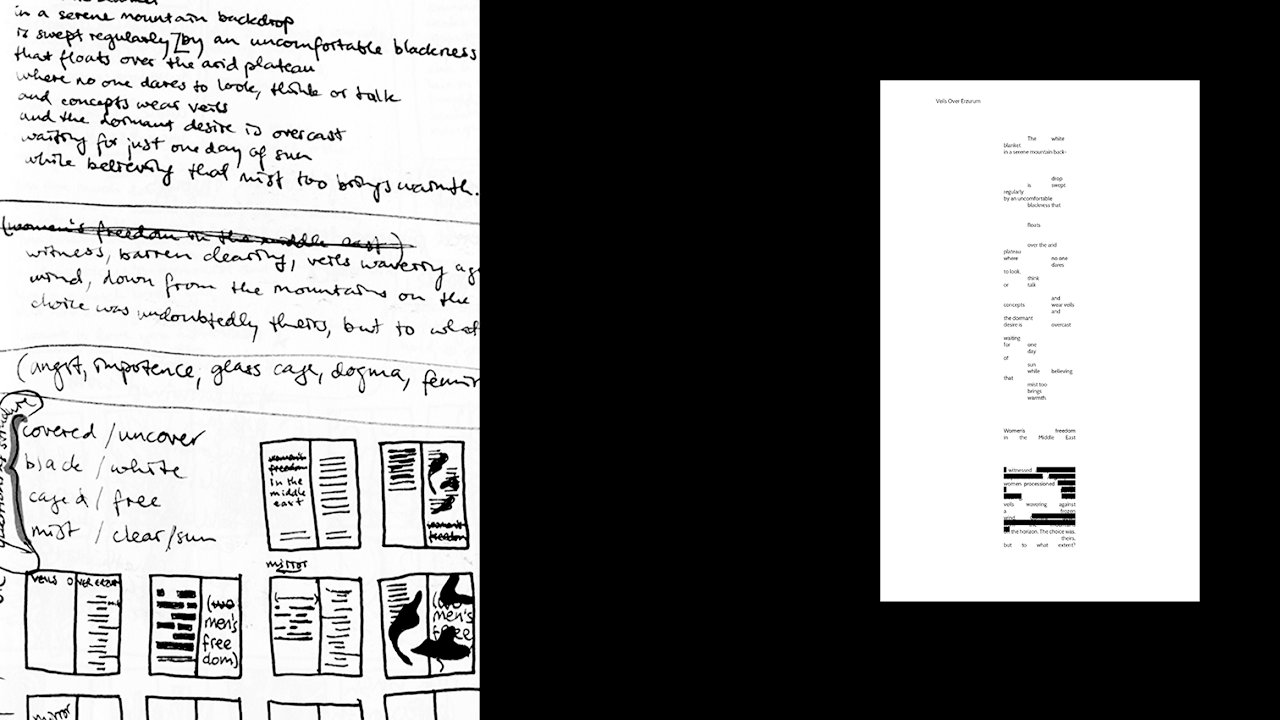 in a serene mountain backdrop
is swept regularly [by an uncomfortable blackness
that floats over the arid plateau
where no one dares to look, think or talk
and concepts wear veils
and the dormant desire is overcast
waiting for just one day of sun
while believing that mist too brings warmth.
(women's freedom in the middle east)
witness, barren clearing, veils wavering
wind, down from the mountains on the
choice was undoubtedly theirs, but to what
(angst, impotence, glass cage, dogma,
covered / uncover
black / white
caged / free
mist / clear/sun
women's
freedom
in the
middle
east
women's
freedom
mirror
VEILS OVER ERZURUM
(wo
men's
free
dom)
(wo
men's
free
mirror
Veils Over Erzurum
The white
blanket
in a serene mountain back-
drop
is swept
regularly
by an uncomfortable
blackness that
floats
over the arid
plateau
where no one
dares
to look,
think
or talk
and
concepts wear veils
and
the dormant
desire is overcast
waiting
for one
day
of
sun
while believing
that
mist too
brings
warmth
Women's freedom
in the Middle East
witnessed
women processioned
veils wavering against
a frozen
wind
on the horizon. The choice was,
theirs,
but to what extent?